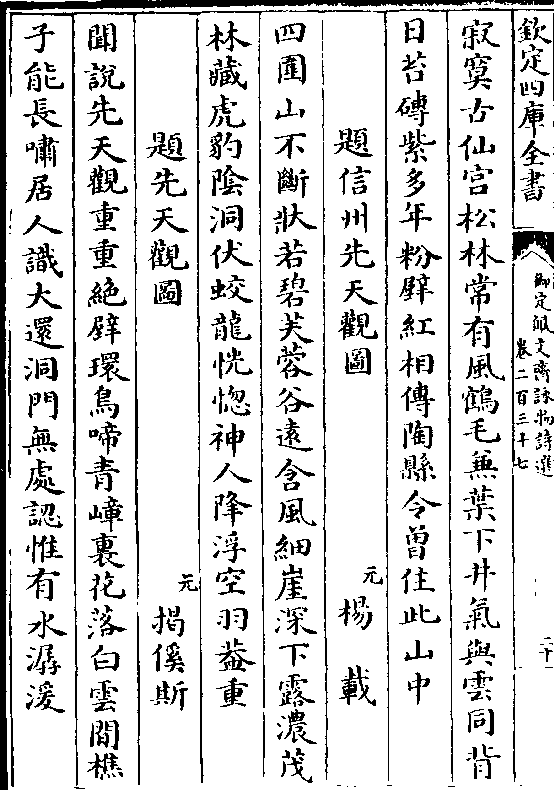 欽定四庫全書
御定佩文齋詠物詩選
卷二百三十七
二十
寂寞古仙宫松林常有風鶴毛兼葉下井氣與雲同背
日苔磚紫多年粉壁紅相傳陶縣令曾住此山中
題信州先天觀圖
元 楊載
四圍山不斷狀若碧芙蓉谷遠含風細崖深下露濃茂
林藏虎豹陰洞伏蛟龍恍惚神人降浮空羽葢重
題先天觀圖
元 揭傒斯
聞說先天觀重重絶壁環鳥啼青嶂裏花落白雲間樵
子能長嘯居人識大還洞門無處認惟有水潺湲